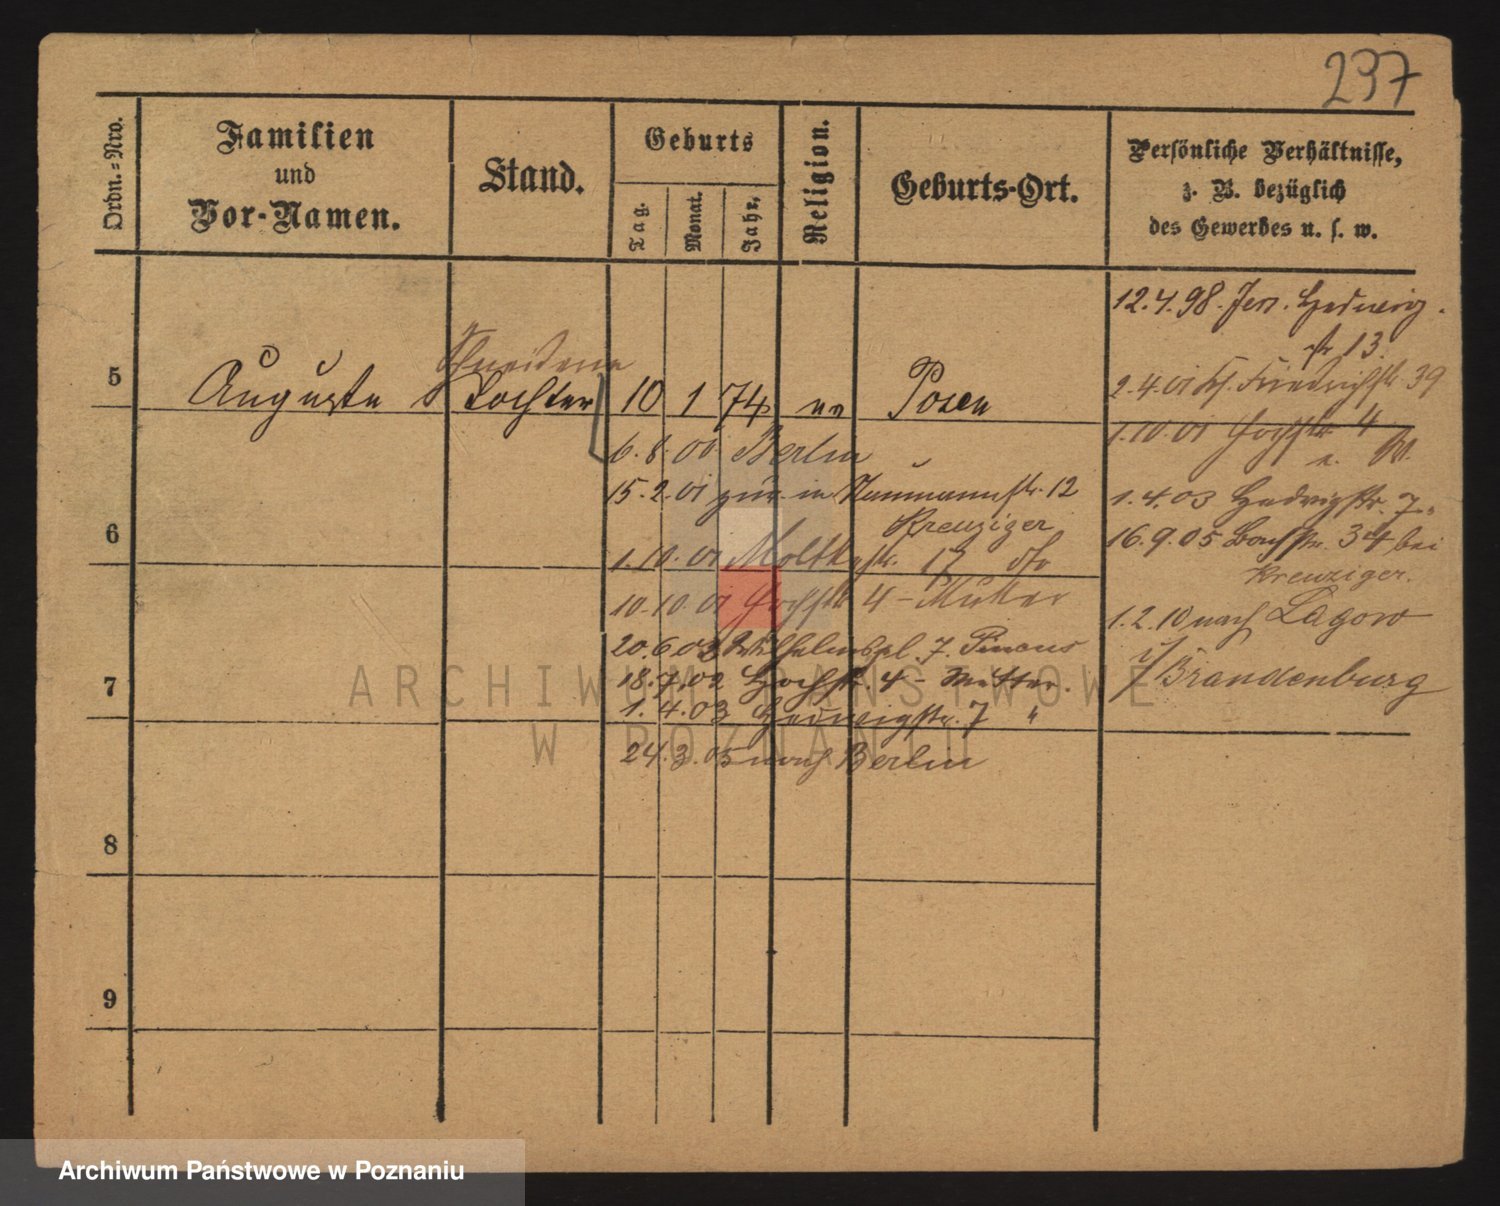 237
Ordn.-Nro.
Familien
und
Vor-Namen.
Stand.
Geburts
Tag.
Monat.
Jahr.
Religion.
Geburts-Ort.
Persönliche Verhältnisse,
z. B. bezüglich
des Gewerbes u. s. w.
12.4.98. Jer. Hedwig
str 13.
Schneiderin
5 Auguste Tochter 10 1 74 Posen
2.4.01 Friedrichstr. 39
1.10.01 Hochstr 4
6.8.00 Berlin
15.2.01 zur. in Naumannstr. 12
Kreuziger
1.4.03 Hedwigstr. 7
16.9.05 34 bei
Kreuziger.
6
1.10.01 Moltkestr. 17 dto
10.10.01 Hochstr 4 - Mutter
1.2.10 nach Lagow
i/Brandenburg
20.6.03 Wilhelmspl. 7. Pincus
7
18.7.02 Hochstr. 4 - Mutter.
1.4.03 Hedwigstr. 7 "
24.3.05 nach Berlin
8
9
ARCHIWUM PAŃSTWOWE
W POZNANIU
Archiwum Państwowe w Poznaniu